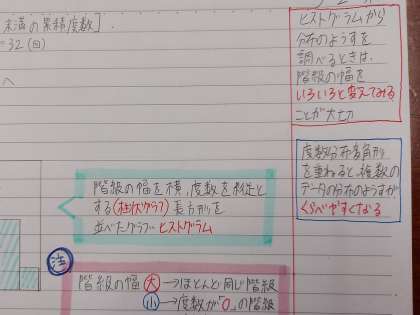 未満の累積度数].
=32(回)
階級の幅を横,度数を縦と
する(柱状グラフ)長方形を
並べたグラフ ヒストグラム
注
階級の幅 大→ほとんど同じ階級
小→度数が「0」の階級
ヒストグラムから
分布のようすを
調べるときは,
階級の幅を
いろいろと変えてみる
ことが大切
度数分布多角形
を重ねると、複数の
データの分布のようすが
くらべやすくなる